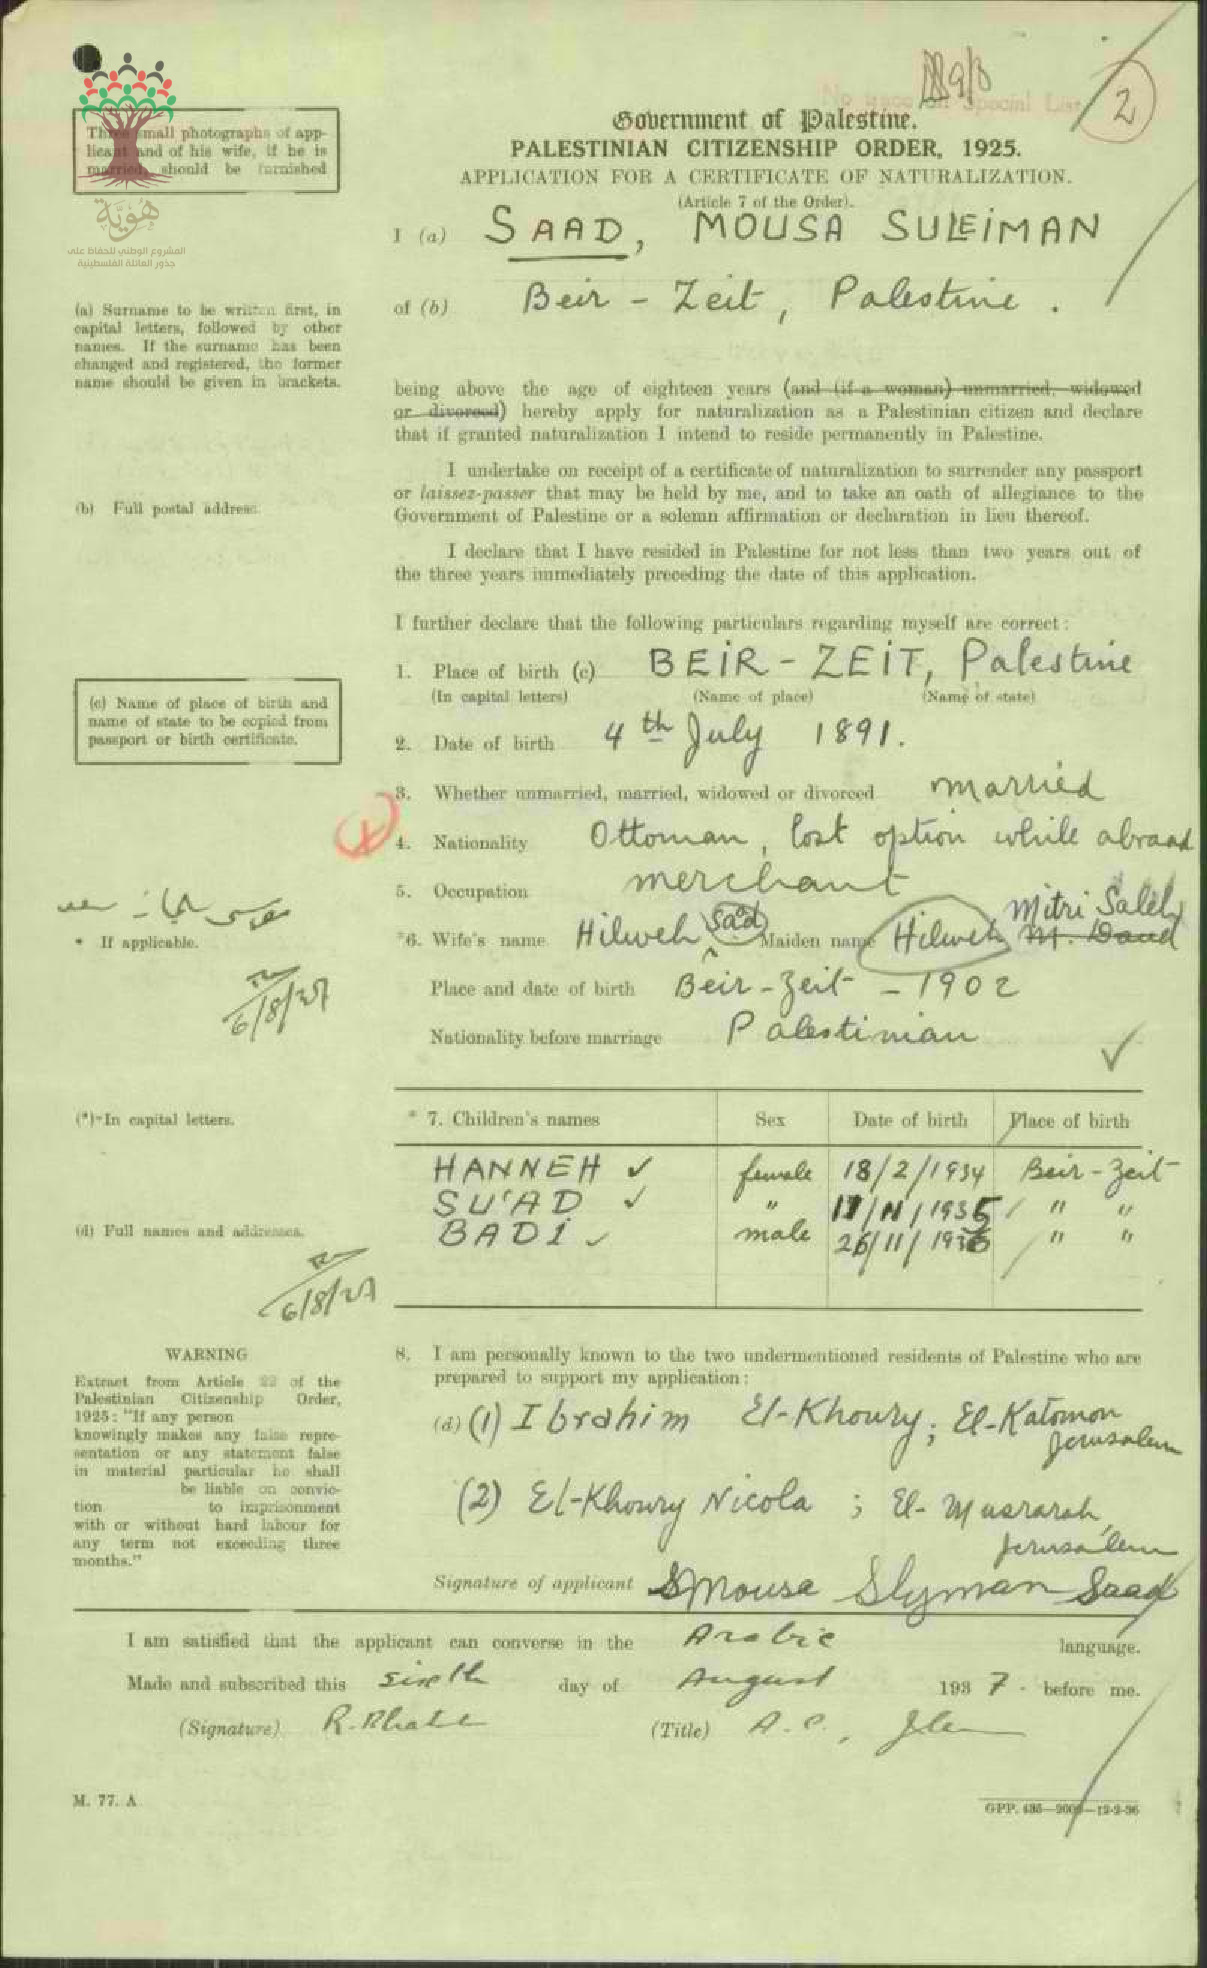 No trace on Special List
2
Three small photographs of app-
licant and of his wife, if he is
married, should be furnished
هُوِيَّة
المشروع الوطني للحفاظ على
جذور العائلة الفلسطينية
Government of Palestine.
PALESTINIAN CITIZENSHIP ORDER, 1925.
APPLICATION FOR A CERTIFICATE OF NATURALIZATION.
(Article 7 of the Order).
I (a) SAAD, MOUSA SULEIMAN
of (b) Beir - Zeit, Palestine.
(a) Surname to be written first, in
capital letters, followed by other
names. If the surname has been
changed and registered, the former
name should be given in brackets.
being above the age of eighteen years (and (if a woman) unmarried, widowed
or divorced) hereby apply for naturalization as a Palestinian citizen and declare
that if granted naturalization I intend to reside permanently in Palestine.
I undertake on receipt of a certificate of naturalization to surrender any passport
or laissez-passer that may be held by me, and to take an oath of allegiance to the
Government of Palestine or a solemn affirmation or declaration in lieu thereof.
(b) Full postal address.
I declare that I have resided in Palestine for not less than two years out of
the three years immediately preceding the date of this application.
I further declare that the following particulars regarding myself are correct:
1. Place of birth (c) BEIR - ZEIT, Palestine
(In capital letters) (Name of place) (Name of state)
(c) Name of place of birth and
name of state to be copied from
passport or birth certificate.
2. Date of birth 4th July 1891.
3. Whether unmarried, married, widowed or divorced married
4. Nationality Ottoman, lost option while abroad
5. Occupation merchant
* If applicable.
*6. Wife's name Hilweh Saad Maiden name Hilweh M. Daud Mitri Saleh
6/8/37
Place and date of birth Beir-Zeit - 1902
Nationality before marriage Palestinian
(*) In capital letters.
* 7. Children's names Sex Date of birth Place of birth
HANNEH female 18/2/1934 Beir-Zeit
SU'AD " 17/11/1935 " "
BADI male 26/11/1936 " "
(d) Full names and addresses.
6/8/37
8. I am personally known to the two undermentioned residents of Palestine who are
prepared to support my application:
(d) (1) Ibrahim El-Khoury; El-Katomon
Jerusalem
(2) El-Khoury Nicola ; El-Musrarah,
Jerusalem
WARNING
Extract from Article 22 of the
Palestinian Citizenship Order,
1925: "If any person
knowingly makes any false repre-
sentation or any statement false
in material particular he shall
be liable on convic-
tion to imprisonment
with or without hard labour for
any term not exceeding three
months."
Signature of applicant Mousa Slyman Saad
I am satisfied that the applicant can converse in the Arabic language.
Made and subscribed this sixth day of August 1937. before me.
(Signature) (Title) A.C., Jlem
M. 77. A
GPP. 435—2000—12-2-36